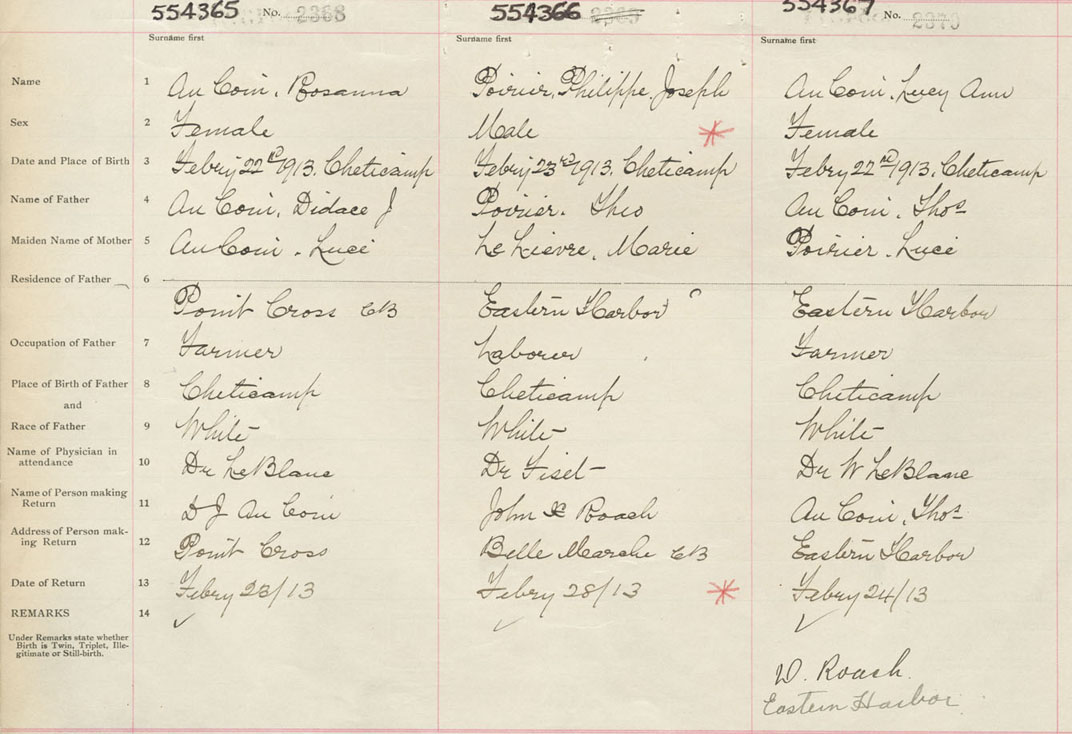 554365 No. 2368 554366 2369 554367 No. 2370
Surname first Surname first Surname first
Name 1 Au Coin, Rosanna Poirier, Philippe Joseph Au Coin, Lucy Ann
Sex 2 Female Male Female
Date and Place of Birth 3 Febry 22nd 1913. Cheticamp Febry 23rd 1913. Cheticamp Febry 22nd 1913. Cheticamp
Name of Father 4 Au Coin, Didace J Poirier. Theo Au Coin, Thos
Maiden Name of Mother 5 Au Coin. Luci LeLievre, Marie Poirier. Luci
Residence of Father 6
Point Cross CB Eastern Harbor Eastern Harbor
Occupation of Father 7 Farmer Laborer Farmer
Place of Birth of Father 8 Cheticamp Cheticamp Cheticamp
and
Race of Father 9 White White White
Name of Physician in
attendance 10 Dr LeBlanc Dr Fiset Dr W LeBlanc
Name of Person making
Return 11 D J Au Coin John Roach Au Coin, Thos
Address of Person mak-
ing Return 12 Point Cross Belle Marche CB Eastern Harbor
Date of Return 13 Febry 23/13 Febry 28/13 Febry 24/13
REMARKS 14
Under Remarks state whether
Birth is Twin, Triplet, Ille-
gitimate or Still-birth.
W. Roach.
Eastern Harbor